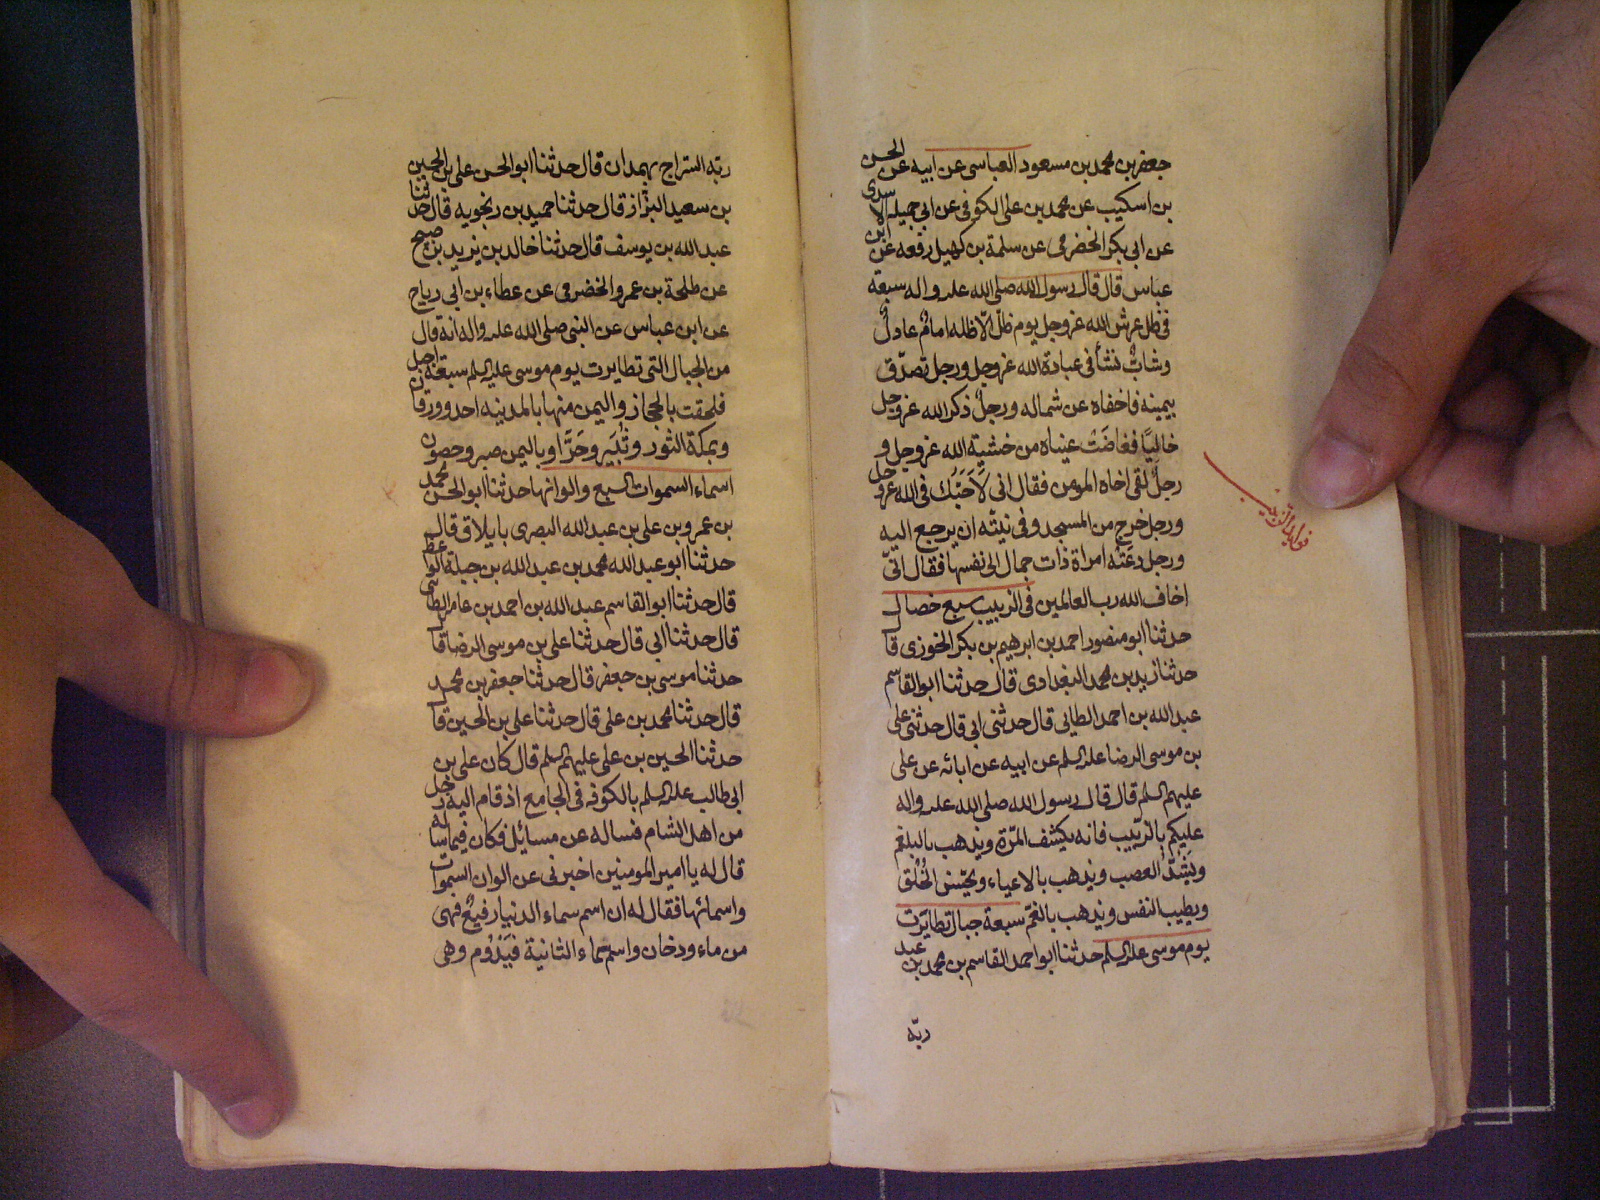 جعفر بن محمد بن مسعود العياسى عن ابيه عن الحسن
بن اسكيب عن محمد بن على الكوفى عن ابى جميلة الاسدى
عن ابى بكر الحضرمى عن سلمة بن كهيل رفعه عن ابن
عباس قال قال رسول الله صلى الله عليه واله سبعة
فى ظل عرش الله عز وجل يوم لا ظل الا ظله امام عادل
وشاب نشأ فى عبادة الله عز وجل ورجل تصدق
بيمينه فاخفاه عن شماله ورجل ذكر الله عز وجل
خاليا ففاضت عيناه من خشية الله عز وجل و
رجل لقى اخاه المومن فقال انى لاحبك فى الله عز وجل
ورجل خرج من المسجد وفى نيته ان يرجع اليه
ورجل دعته امراة ذات جمال الى نفسها فقال انى
اخاف الله رب العالمين فى الزبيب سبع خصال
حدثنا ابو منصور احمد بن ابرهيم بن بكر الخوزى قا
حدثنا زيد بن محمد البغدادى قال حدثنا ابو القاسم
عبد الله بن احمد الطايى قال حدثنى ابى قال حدثنى على
بن موسى الرضا عليه السلم عن ابيه عن ابائه عن على
عليهم السلم قال قال رسول الله صلى الله عليه واله
عليكم بالزبيب فانه يكشف المرة ويذهب بالبلغم
ويشد العصب ويذهب بالاعياء ويحسن الخلق
ويطيب النفس ويذهب بالغم سبعة جبال تطايرت
يوم موسى عليه السلم حدثنا ابو احمد القاسم بن محمد بن عبد
ربه
فوايد الزبيب
ربه السراج بهمدان قال حدثنا ابو الحسن على بن الحسين
بن سعيد البزاز قال حدثنا حميد بن زنجويه قال حدثنا
عبد الله بن يوسف قال حدثنا خالد بن يزيد بن صبيح
عن طلحة بن عمرو الحضرمى عن عطاء بن ابى رباح
عن ابن عباس عن النبى صلى الله عليه واله انه قال
من الجبال التى تطايرت يوم موسى عليه السلم سبعة اجبل
فلحقت بالحجاز واليمن منها بالمدينه احد وورقان
وبمكة الثور وثبير وحرا وباليمن صبر وحصون
اسماء السموات السبع والوانها حدثنا ابو الحسن محمد
بن عمرو بن على بن عبد الله البصرى بايلاق قال
حدثنا ابو عبد الله محمد بن عبد الله بن جبلة الواعظ
قال حدثنا ابو القاسم عبد الله بن احمد بن عامر الطائى
قال حدثنا ابى قال حدثنا على بن موسى الرضا قال
حدثنا موسى بن جعفر قال حدثنا جعفر بن محمد
قال حدثنا محمد بن على قال حدثنا على بن الحسين قال
حدثنا الحسين بن على عليهم السلم قال كان على بن
ابى طالب عليه السلم بالكوفه فى الجامع اذ قام اليه رجل
من اهل الشام فساله عن مسائل فكان فيما ساله
قال له يا امير المومنين اخبرنى عن الوان السموات
واسمائها فقال له ان اسم سماء الدنيا رفيع فهى
من ماء ودخان واسم سماء الثانية فيذوم وهى